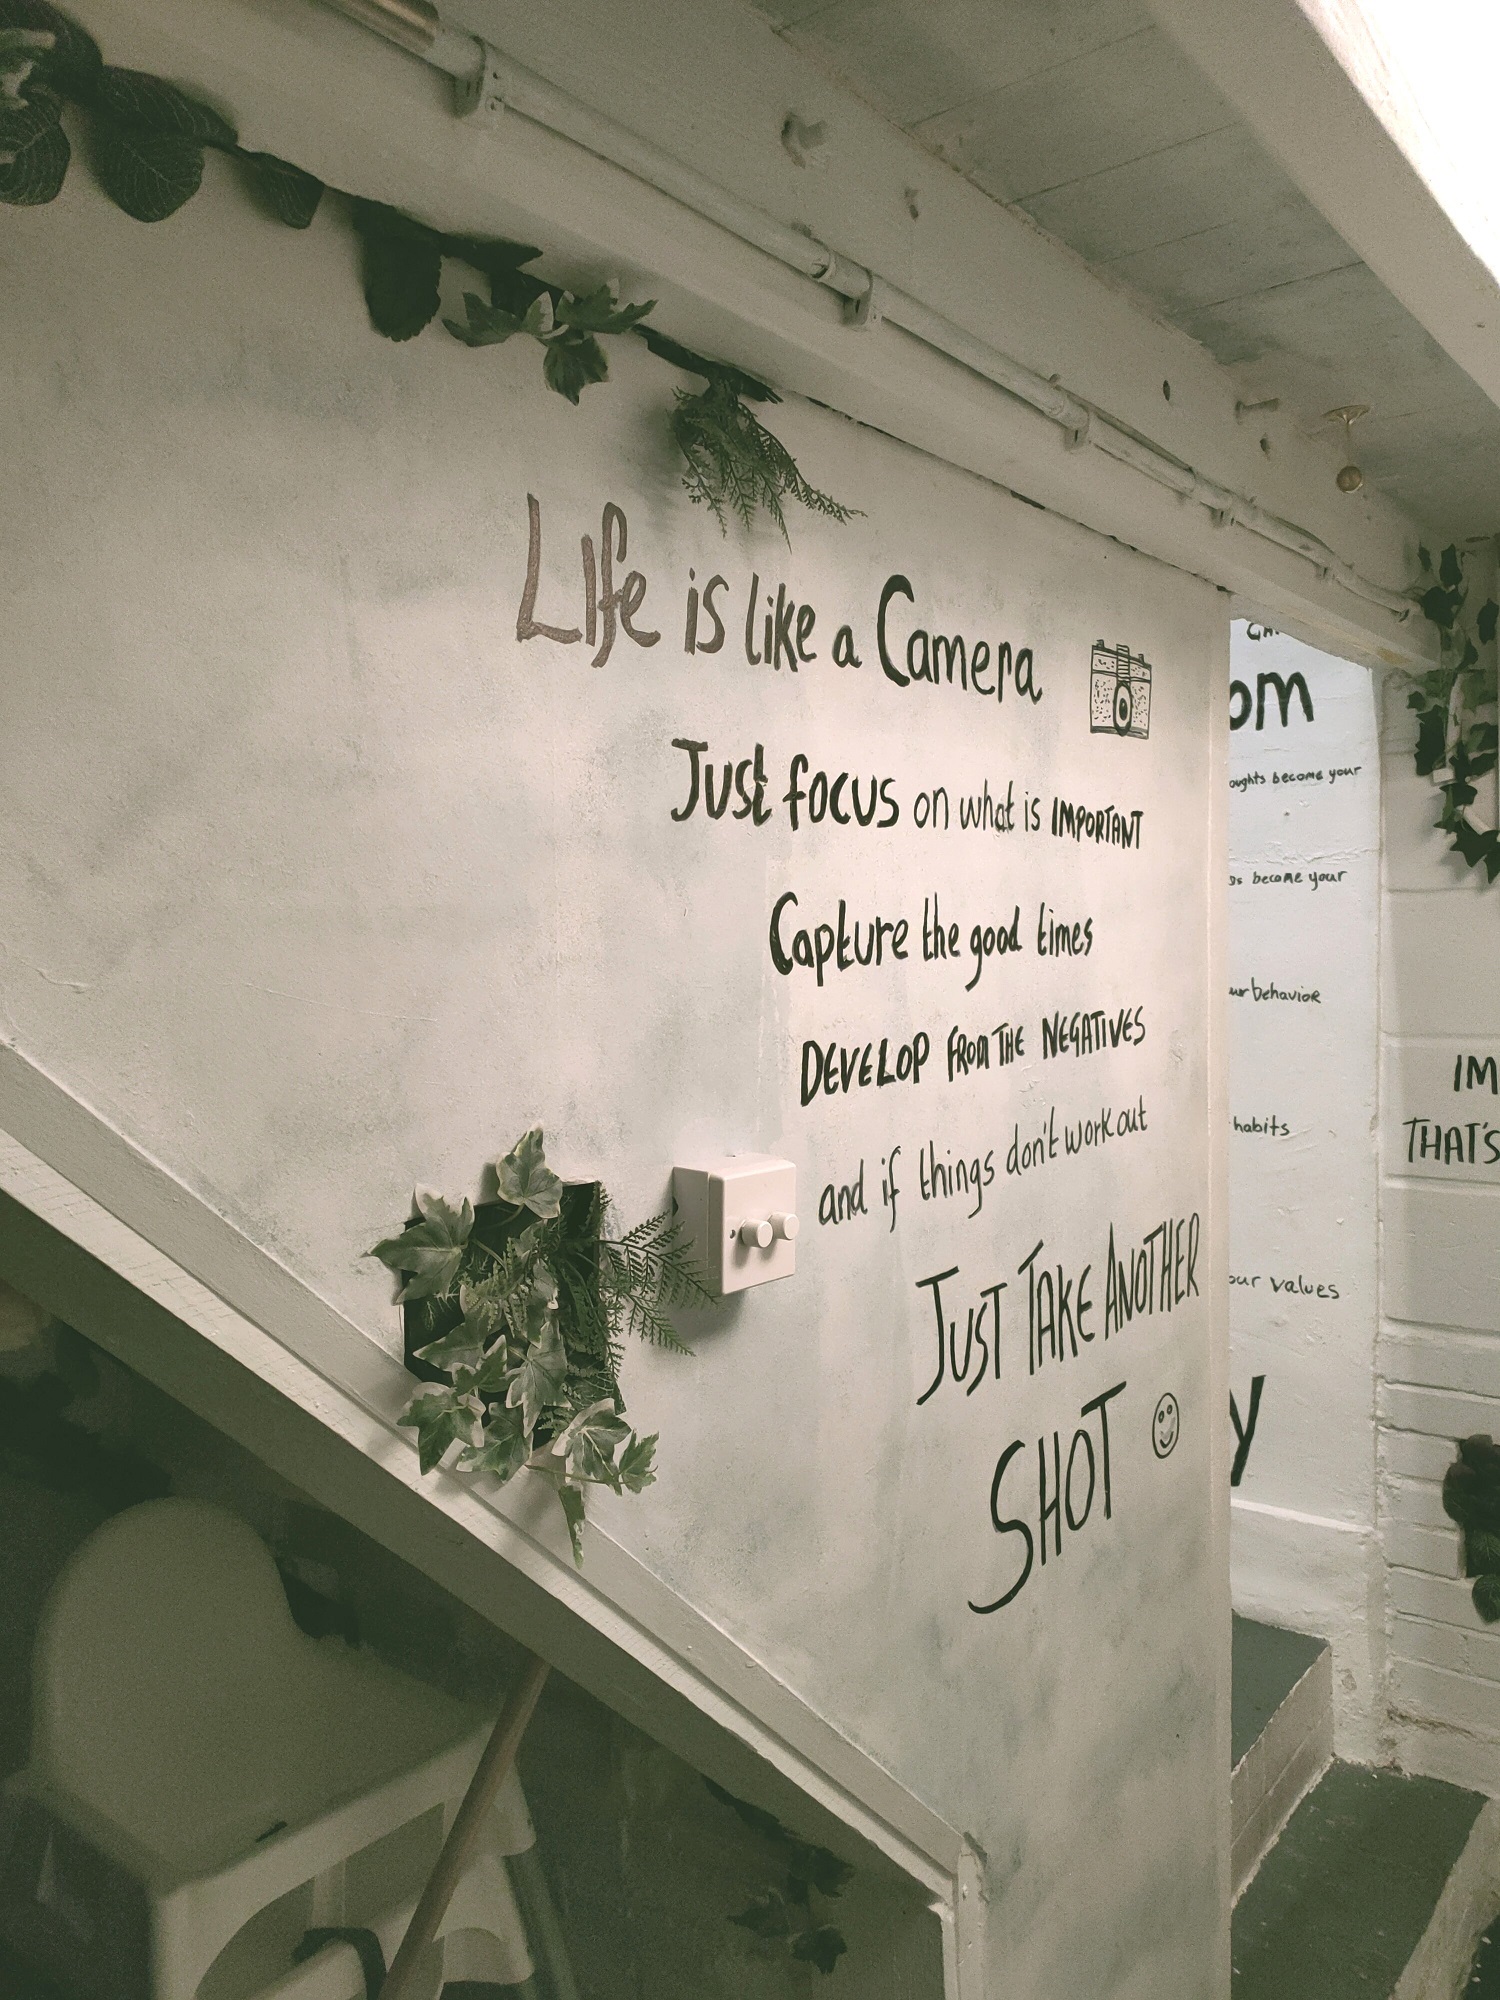 LIfe is like a Camera
Just focus on what is IMPORTANT
Capture the good times
DEVELOP FROM THE NEGATIVES
and if things don't work out
JUST TAKE ANOTHER
SHOT
become your
become your
behavior
habits
values
THAT'S